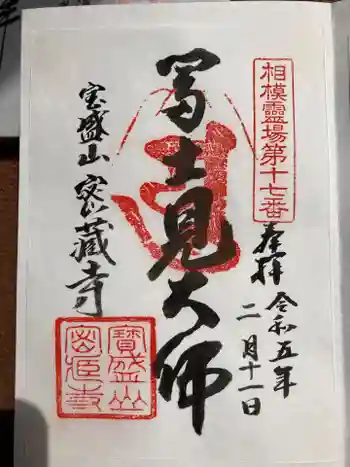 相模霊場第十七番
奉拝
令和五年
二月十一日
富士見大師
宝盛山
密蔵寺
寳盛山
密蔵寺